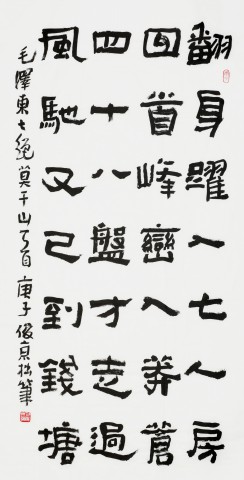 翻身躍入七人房
回首峰巒入莽蒼
四十八盤才走過
風馳又已到錢塘
毛澤東七絕莫干山首 庚子 筆